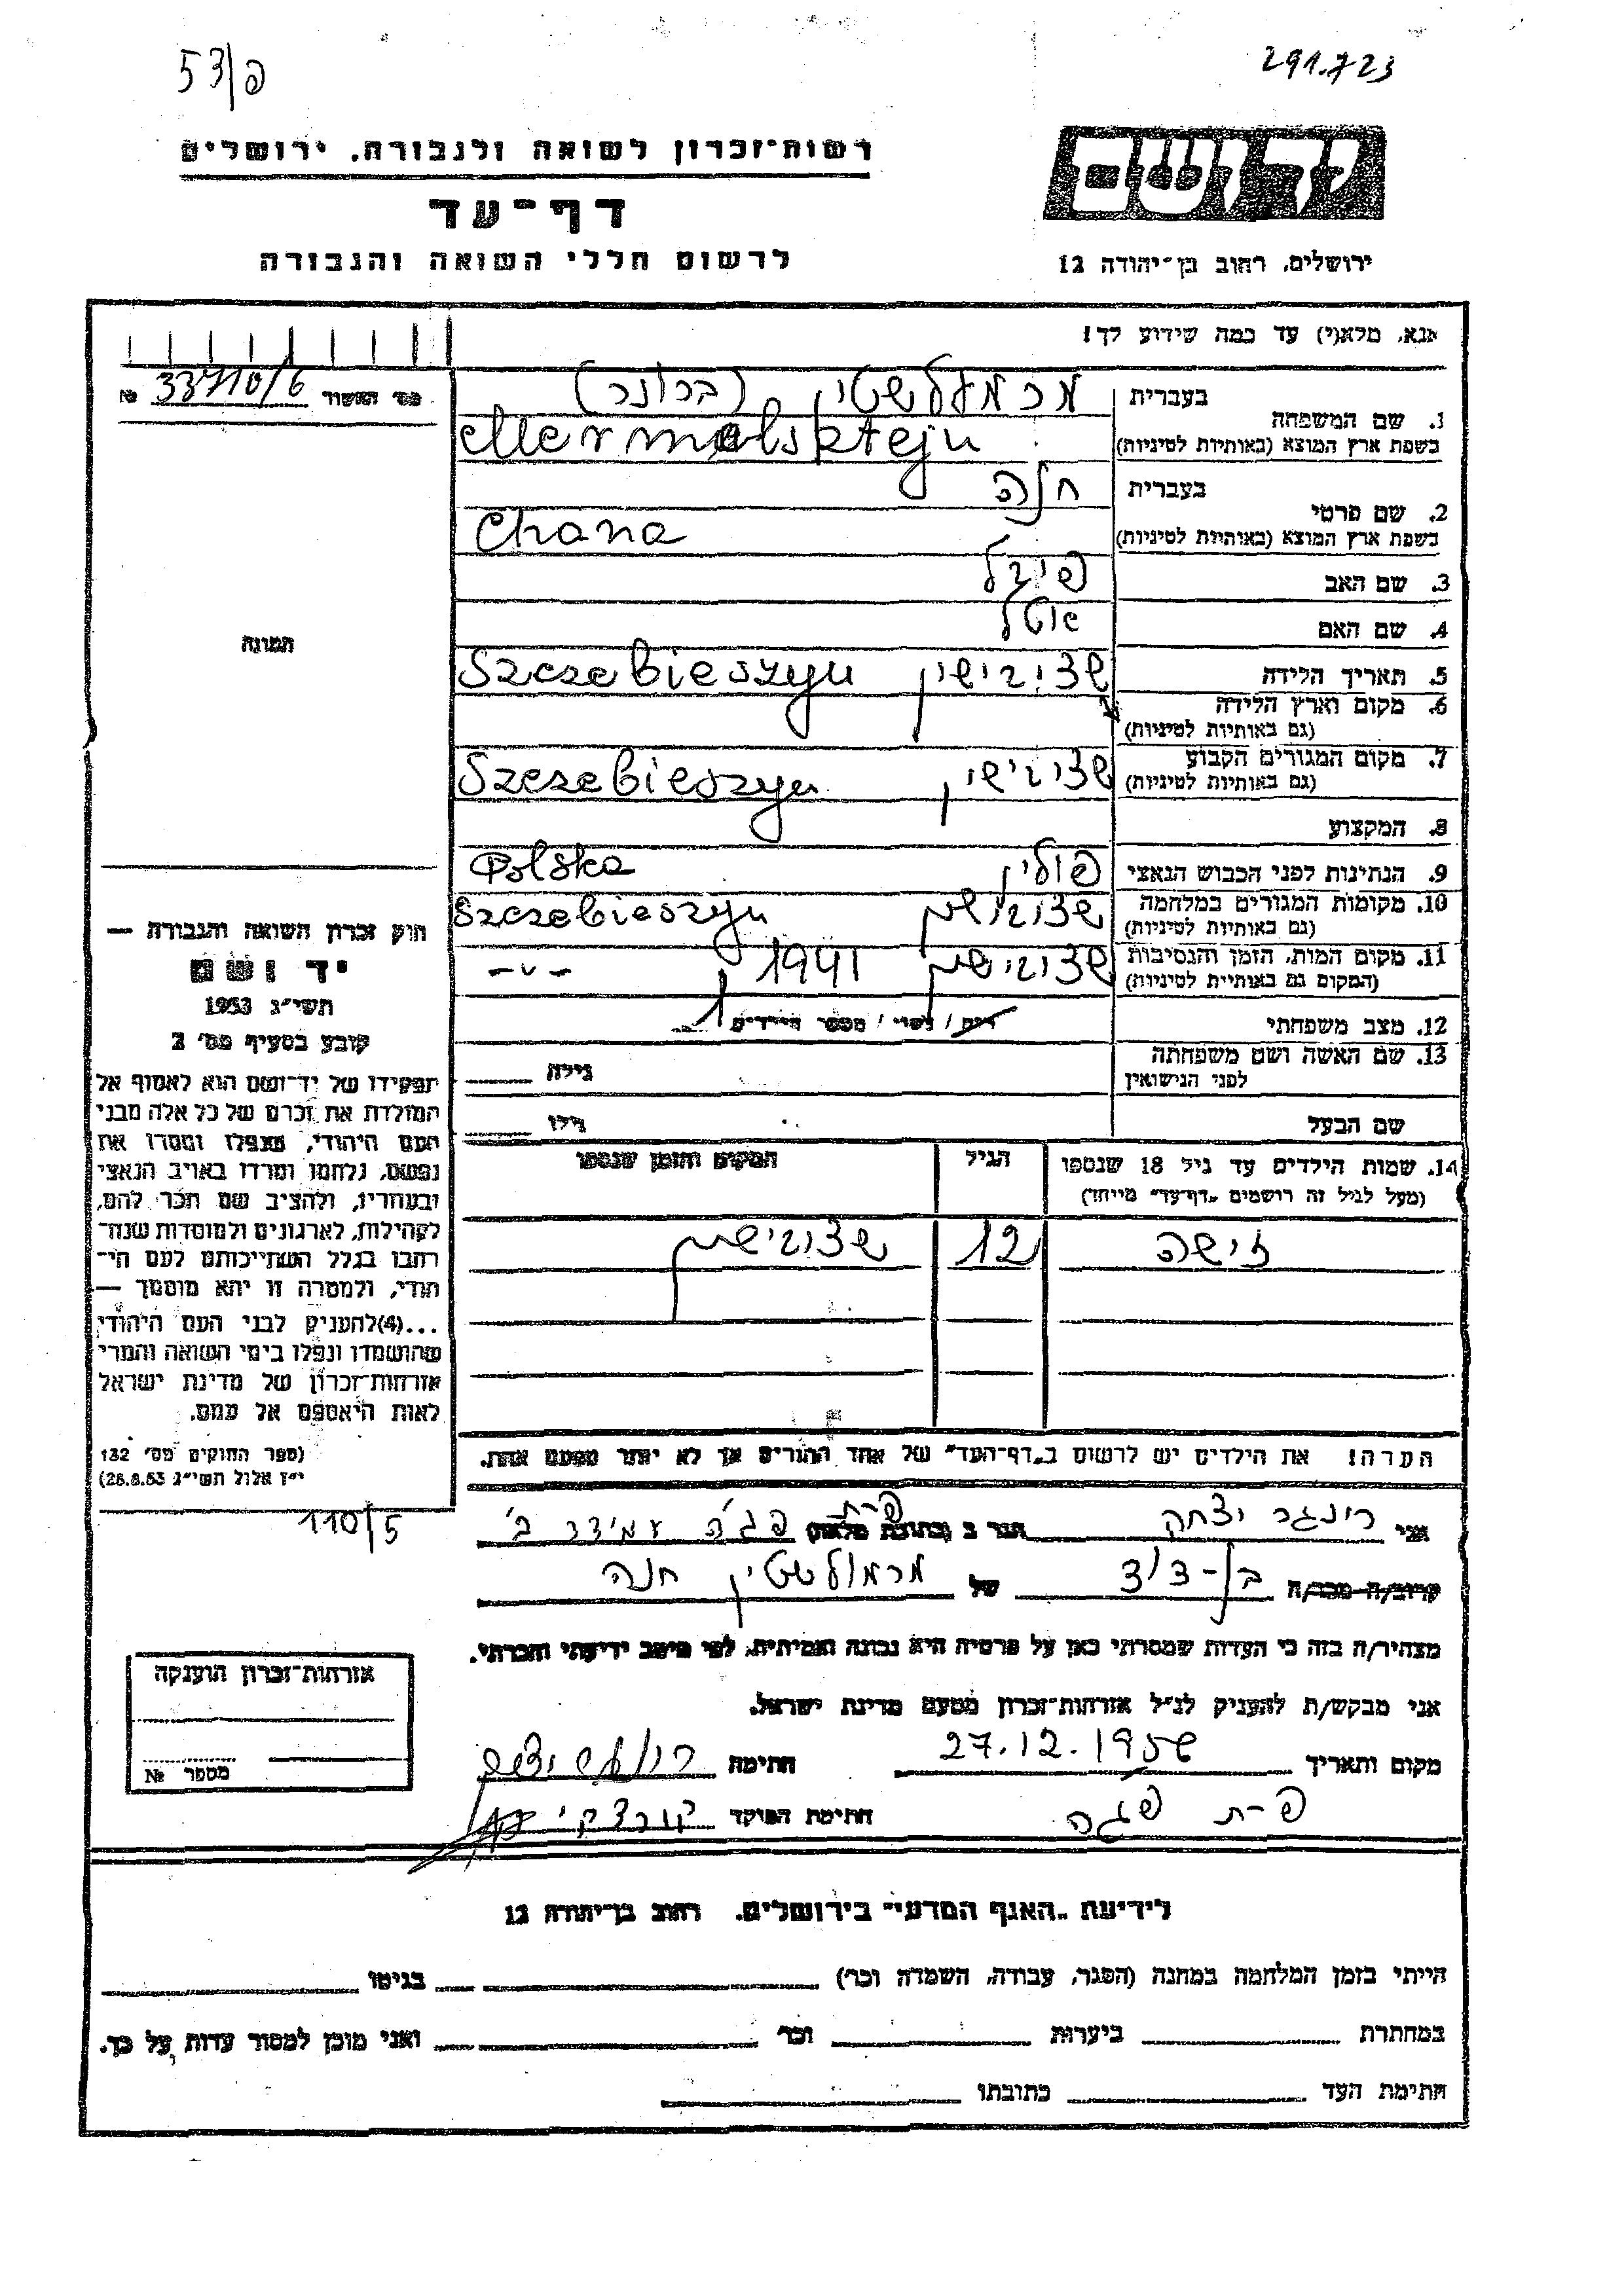 פ/53
291.723
רשות־זכרון לשואה ולגבורה, ירושלים
דף־עד
לרשום חללי השואה והגבורה
יד ושם
ירושלים, רחוב בן־יהודה 12
אנא, מלא(י) עד כמה שידוע לך!
מס׳ האשור 33710/6 №
1. שם המשפחה
בעברית
(ברונר)
בשפת ארץ המוצא (באותיות לטיניות) Mermelsktejn
2. שם פרטי
בעברית חנה
בשפת ארץ המוצא (באותיות לטיניות) Chana
3. שם האב פייבל
4. שם האם אטל
תמונה
5. תאריך הלידה
שצ'ברישין Szczebieszyn
6. מקום וארץ הלידה
(גם באותיות לטיניות)
7. מקום המגורים הקבוע שצ'ברישין Szczebieszyn
(גם באותיות לטיניות)
8. המקצוע
9. הנתינות לפני הכבוש הנאצי פולין Polska
10. מקומות המגורים במלחמה שצ'ברישין Szczebieszyn
(גם באותיות לטיניות)
11. מקום המות, הזמן והנסיבות שצ'ברישין 1941 -״-
(המקום גם באותיות לטיניות)
12. מצב משפחתי רוק/ נשוי/ מספר הילדים 1
13. שם האשה ושם משפחתה
לפני הנישואין
גילה
שם הבעל
גילו
14. שמות הילדים עד גיל 18 שנספו
(מעל לגיל זה רושמים „דף־עד" מיוחד)
הגיל
המקום והזמן שנספו
זישה 12 שצ'ברישין
הערה! את הילדים יש לרשום ב„דף־העד" של אחד ההורים אך לא יותר מפעם אחת.
חוק זכרון השואה והגבורה —
יד ושם
תשי״ג 1953
קובע בסעיף מס׳ 2
תפקידו של יד־ושם הוא לאסוף אל
המולדת את זכרם של כל אלה מבני
העם היהודי, שנפלו ומסרו את
נפשם, נלחמו ומרדו באויב הנאצי
ובעוזריו, ולהציב שם וזכר להם,
לקהילות, לארגונים ולמוסדות שנח־
רבו בגלל השתייכותם לעם הי־
הודי, ולמטרה זו יהא מוסמך —
...(4)להעניק לבני העם היהודי
שהושמדו ונפלו בימי השואה והמרי
אזרחות־זכרון של מדינת ישראל
לאות היאספם אל עמם.
(ספר החוקים מס׳ 132
י״ז אלול תשי״ג 28.8.53)
110/5
אני רינגר יצחק הגר ב (כתובת מלאה) פ-ת פג'ה עמידר ב'
קרוב/ה מכר/ה בן-דוד של מרמולשטין חנה
מצהיר/ה בזה כי העדות שמסרתי כאן על פרטיה היא נכונה ואמיתית, לפי מיטב ידיעתי והכרתי.
אני מבקש/ת להעניק לנ״ל אזרחות־זכרון מטעם מדינת ישראל.
מקום ותאריך 27.12.195 חתימה
פ-ת פגה חתימת הפוקד
אזרחות־זכרון הוענקה
מספר №
לידיעת „האגף המדעי" בירושלים, רחוב בן־יהודה 12
הייתי בזמן המלחמה במחנה (הסגר, עבודה, השמדה וכו׳) בגיטו
במחתרת ביערות וכו׳ ואני מוכן למסור עדות על כך.
חתימת העד כתובתו